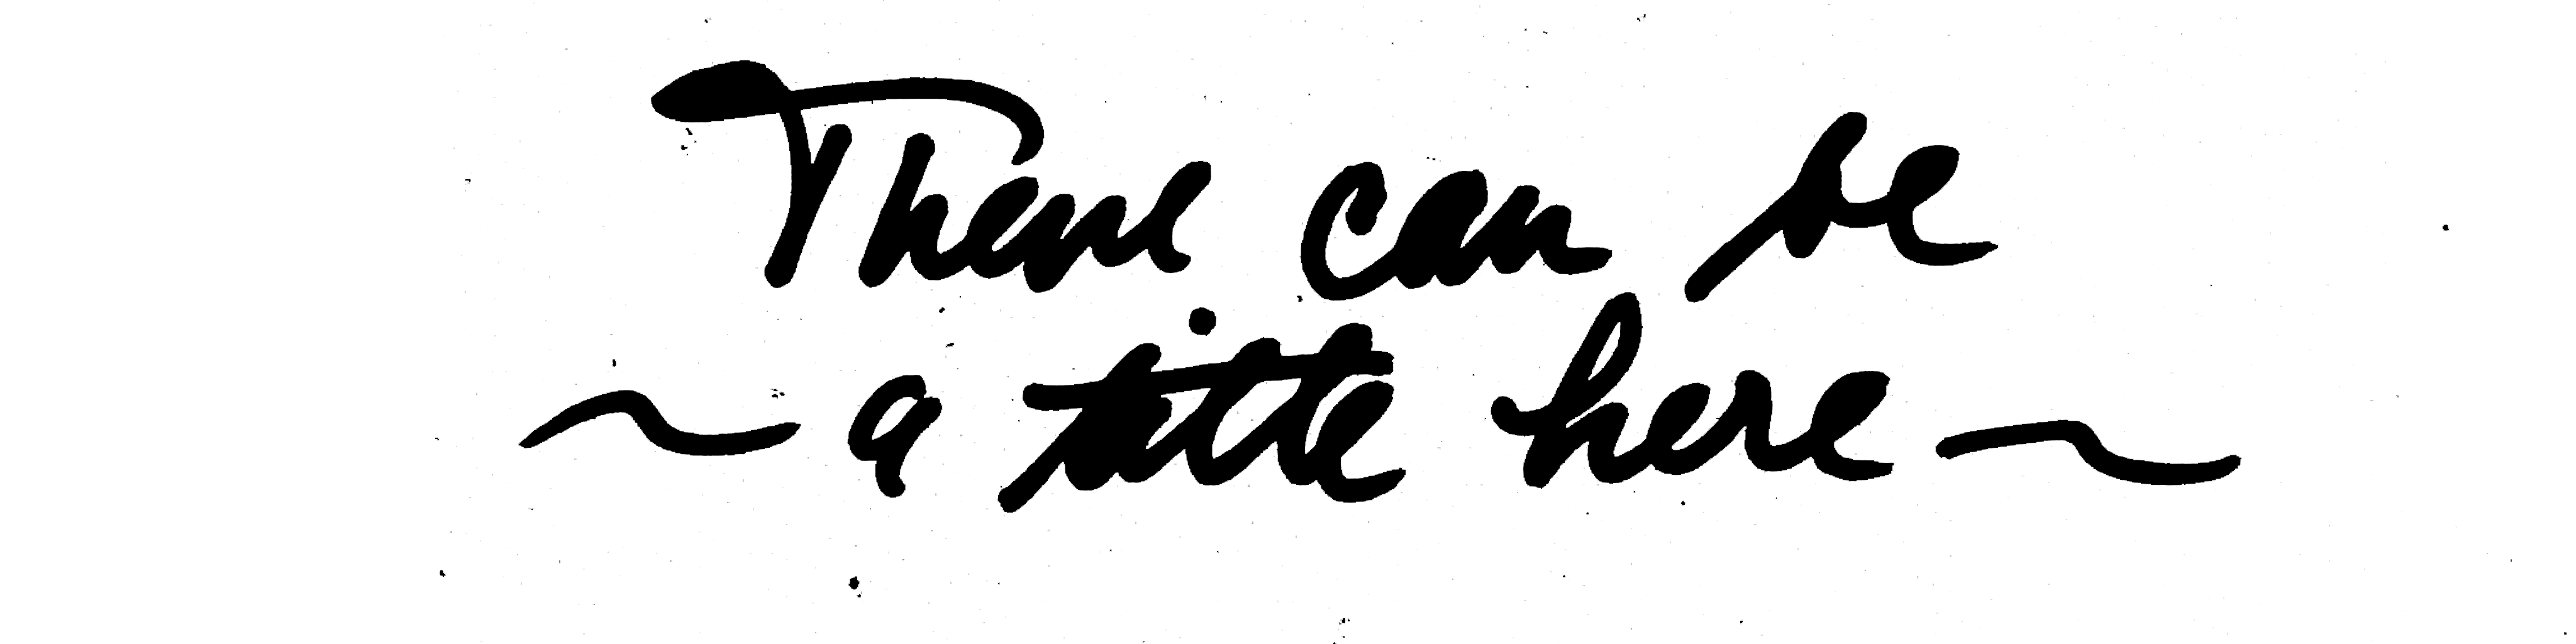 There can be
~ a title here ~